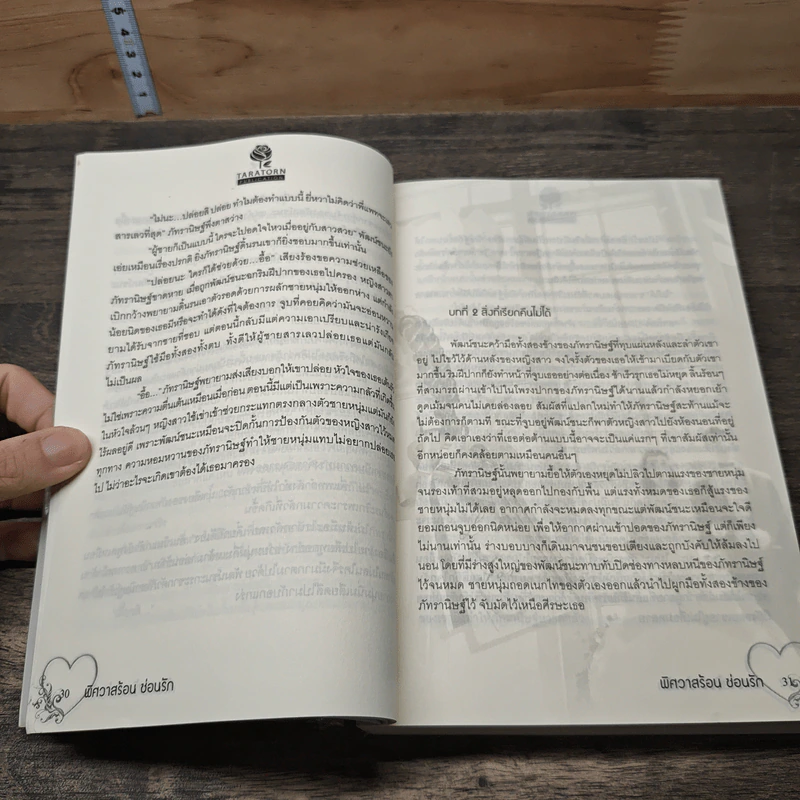 5 4 3 2 1
TARATORN
PUBLICATION
"ไม่นะ...ปล่อยสิ ปล่อย ทำไมต้องทำแบบนี้ ยี่หวาไม่คิดว่าพี่แพท
สารเลวที่สุด" ภัทรานิษฐ์พึ่งตาสว่าง
"ผู้ชายก็เป็นแบบนี้ ใครจะไปอดใจไหวเมื่ออยู่กับสาวสวย" พัฒน์ชนะ
เอ่ยเหมือนเรื่องปรกติ ยิ่งภัทรานิษฐ์ดิ้นรนเขาก็ยิ่งชอบมากขึ้นเท่านั้น
"ปล่อยนะ ใครก็ได้ช่วยด้วย...อื้อ" เสียงร้องขอความช่วยเหลือของ
ภัทรานิษฐ์ขาดหาย เมื่อถูกพัฒน์ชนะฉกริมฝีปากของเธอไปครอง หญิงสาว
เบิกตากว้างพยายามดิ้นรนเอาตัวรอดด้วยการผลักชายหนุ่มให้ออกห่าง แต่กำลัง
น้อยนิดของเธอมีหรือจะทำได้ดั่งที่ใจต้องการ จูบที่คอยคิดว่ามันจะอ่อนหวาน
ยามได้รับจากชายที่ชอบ แต่ตอนนี้กลับมีแต่ความเอาเปรียบและน่ารังเกียจ
ภัทรานิษฐ์ใช้มือทั้งสองทั้งตบ ทั้งตีให้ผู้ชายสารเลวปล่อยเธอแต่มันกลับ
ไม่เป็นผล
"อื้อ..." ภัทรานิษฐ์พยายามส่งเสียงบอกให้เขาปล่อย หัวใจของเธอเต้น
ไม่ใช่เพราะความตื่นเต้นเหมือนเมื่อก่อน ตอนนี้มีแต่เป็นเพราะความกลัวที่เกิดขึ้น
ในหัวใจล้วนๆ หญิงสาวใช้เข่าเข้าช่วยกระแทกตรงกลางตัวชายหนุ่มแต่มันก็
ไร้ผลอยู่ดี เพราะพัฒน์ชนะเหมือนจะปิดกั้นการป้องกันตัวของหญิงสาวไว้
ทุกทาง ความหอมหวานของภัทรานิษฐ์ทำให้ชายหนุ่มแทบไม่อยากปล่อย
ไป ไม่ว่าอะไรจะเกิดเขาต้องได้เธอมาครอง
30 พิศวาสร้อน ซ่อนรัก
บทที่ 2 สิ่งที่เรียกคืนไม่ได้
พัฒน์ชนะคว้ามือทั้งสองข้างของภัทรานิษฐ์ที่ทุบแผ่นหลังและลำตัวเขา
อยู่ ไปไขว้ไว้ด้านหลังของหญิงสาว จงใจรั้งตัวของเธอให้เข้ามาเบียดกับตัวเขา
มากขึ้น ริมฝีปากก็ยังทำหน้าที่จูบเธออย่างต่อเนื่อง ซ้ำเร้ารุกเธอไม่หยุด ลิ้นร้อนๆ
ที่สามารถผ่านเข้าไปในโพรงปากของภัทรานิษฐ์ได้นานแล้วกำลังหยอกเย้า
ดูดเม้มจนคนไม่เคยล่องลอย สัมผัสที่แปลกใหม่ทำให้ภัทรานิษฐ์สะท้านแม้จะ
ไม่ต้องการก็ตามที ขณะที่จูบอยู่พัฒน์ชนะก็พาตัวหญิงสาวไปยังห้องนอนที่อยู่
ถัดไป คิดเอาเองว่าที่เธอต่อต้านแบบนี้อาจจะเป็นแค่แรกๆ ที่เขาสัมผัสเท่านั้น
อีกหน่อยก็คงคล้อยตามเหมือนคนอื่นๆ
ภัทรานิษฐ์นั้นพยายามยื้อให้ตัวเองหยุดไม่ปลิวไปตามแรงของชายหนุ่ม
จนรองเท้าที่สวมอยู่หลุดออกไปกองกับพื้น แต่แรงทั้งหมดของเธอก็สู้แรงของ
ชายหนุ่มไม่ได้เลย อากาศกำลังจะหมดลงทุกขณะแต่พัฒน์ชนะเหมือนจะใจดี
ยอมถอนจูบออกนิดหน่อย เพื่อให้อากาศผ่านเข้าปอดของภัทรานิษฐ์ แต่ก็เพียง
ไม่นานเท่านั้น ร่างบอบบางก็เดินมาจนชนขอบเตียงและถูกบังคับให้ล้มลงไป
นอน โดยที่มีร่างสูงใหญ่ของพัฒน์ชนะทาบทับปิดช่องทางหลบหนีของภัทรานิษฐ์
ไว้จนหมด ชายหนุ่มถอดเนกไทของตัวเองออกแล้วนำไปผูกมือทั้งสองข้างของ
ภัทรานิษฐ์ไว้ จับมัดไว้เหนือศีรษะเธอ
พิศวาสร้อน ซ่อนรัก 31